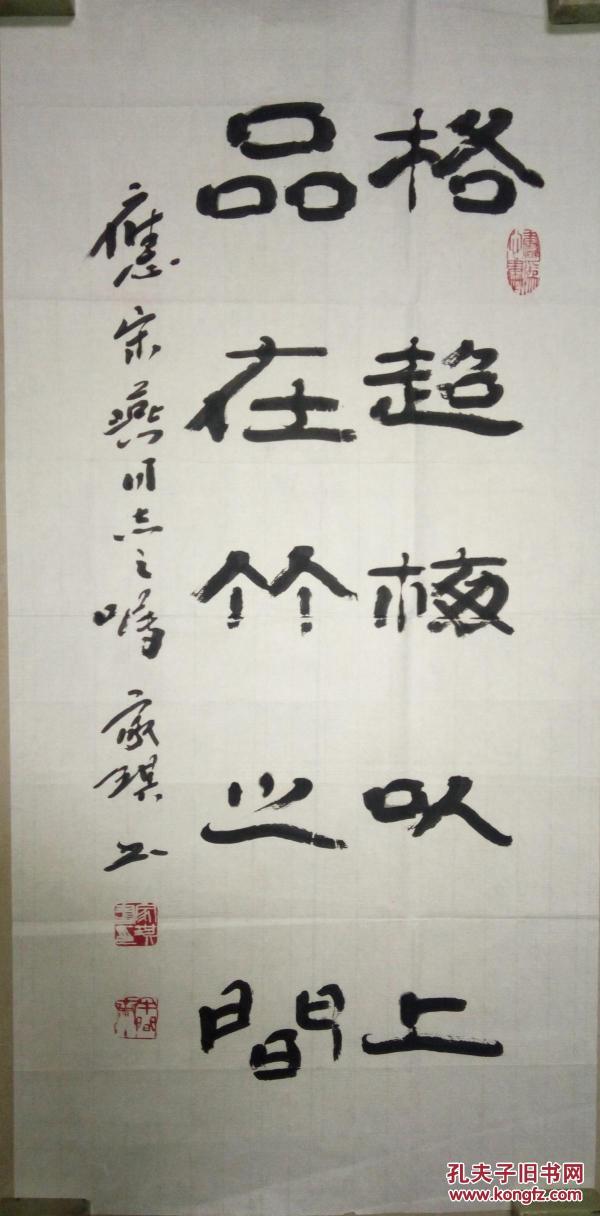 格超梅以上
品在竹之間
應宋燕同志之嘱 家琪书
孔夫子旧书网
www.kongfz.com